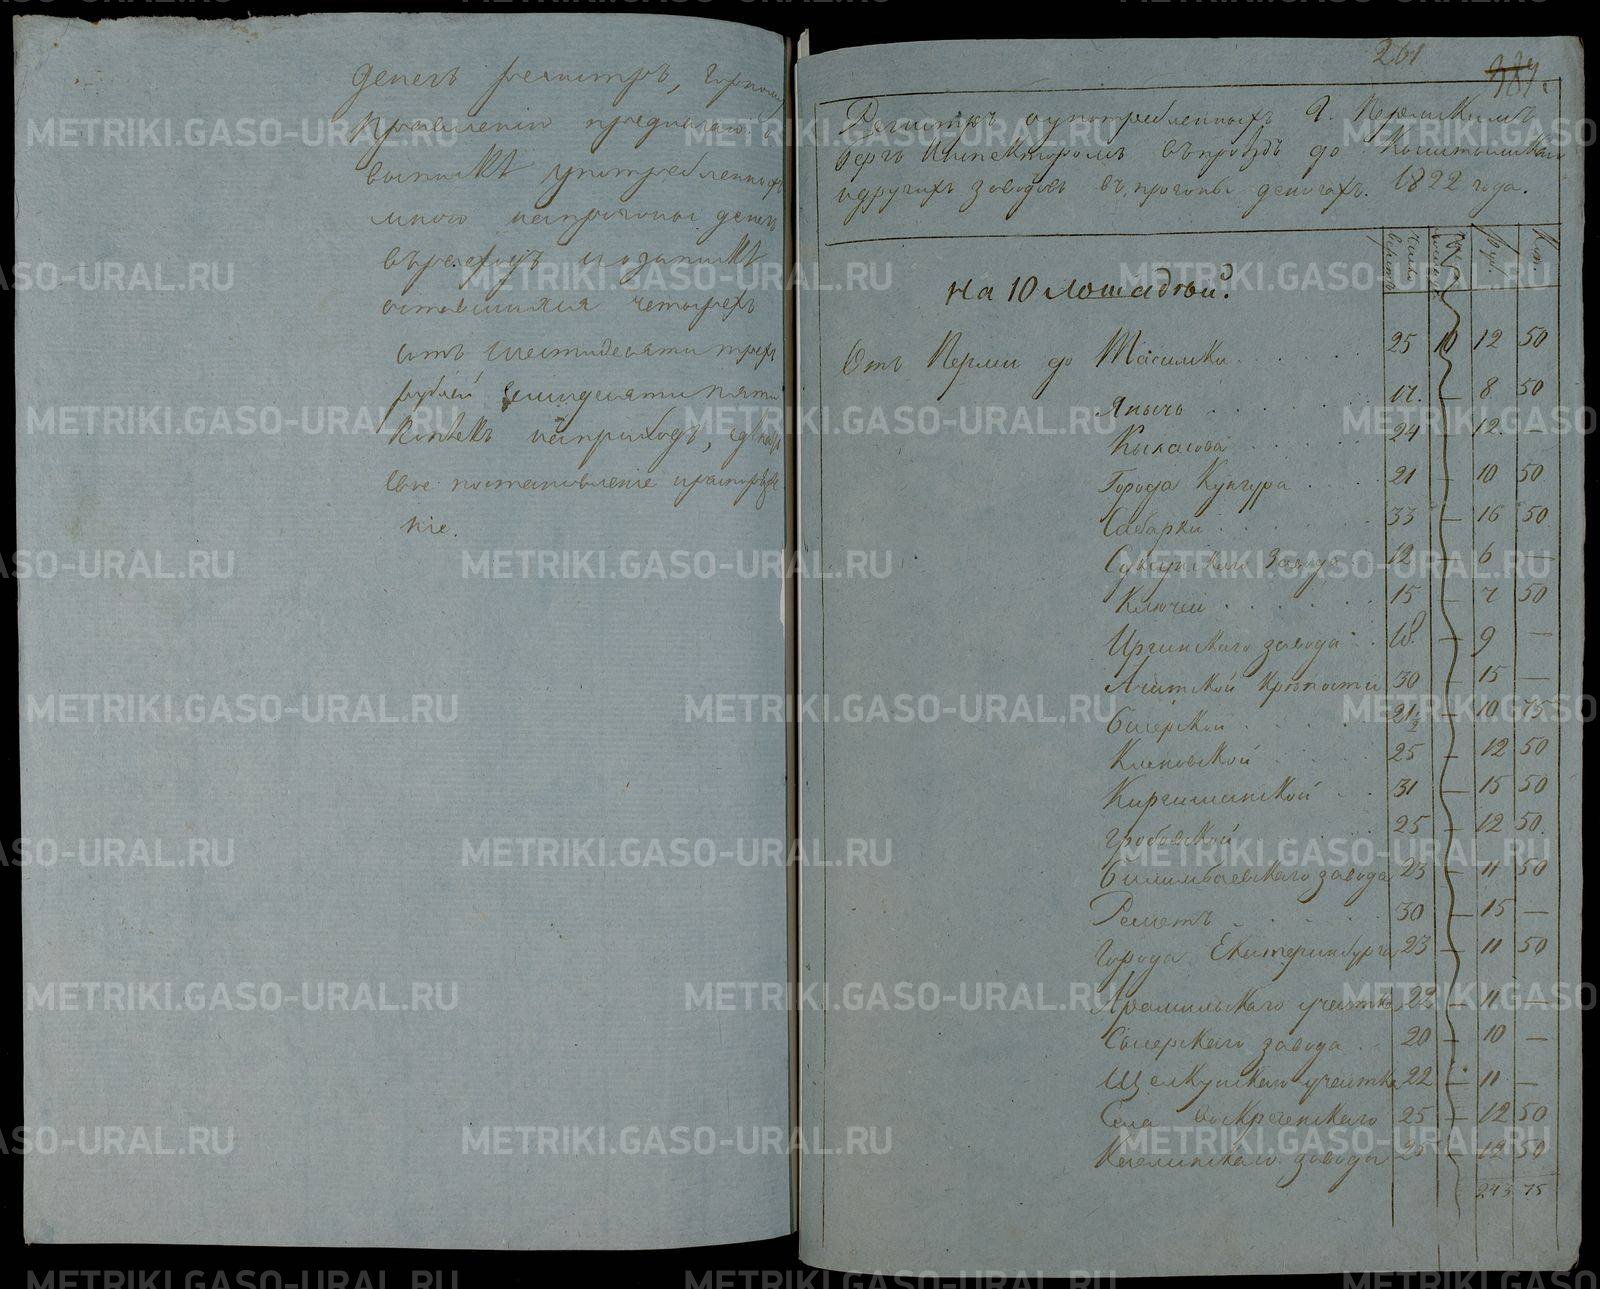 денегъ реэистръ, Горному
Правленію предлагаю о
выпискѣ употребленныхъ
мною на прогоны денегъ
въ расходъ и о запискѣ
оставшихся четырехъ
сотъ шестидесяти трехъ
рублей семидесяти пяти
копѣекъ на приходъ, сдѣлать
свое постановленіе и распоряже
ніе.
261
Регистръ о употребленныхъ Г. Пермскимъ
Бергъ Инспекторомъ въ проѣздъ до Кыштымскаго
и другихъ заводовъ въ прогоны деньгахъ. 1822 года.
Число верстъ
Руб.
Коп.
На 10 лошадей.
Отъ Перми до Тасимки 25 10 12 50
Янычь 17. — 8 50
Кыласова 24 — 12 —
Города Кунгура 21 — 10 50
Сабарки 33 — 16 50
Суксунскаго Завода 12 — 6 —
Ключей 15 — 7 50
Иргинскаго завода 18. — 9 —
Ачитской крѣпости 30 — 15 —
Бисерской 21½ — 10 75
Кленовской 25 — 12 50
Киргишанской 31 — 15 50
Гробовской 25 — 12 50
Билимбаевскаго завода 23 — 11 50
Решетъ 30 — 15 —
Города Екатеринбурга 23 — 11 50
Арамильскаго участка 22 — 11 —
Сысерскаго завода 20 — 10 —
Щелкунскаго участка 22 — 11 —
Села Воскресенскаго 25 — 12 50
Каслинскаго завода 25 — 12 50
243 75